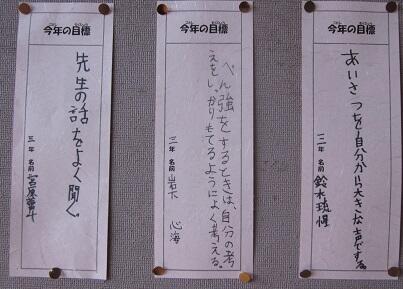 今年の目標
あいさつを自分から大きな声でする。
年 名前 鈴木
今年の目標
べん強をするときは、自分の考
えをしっかりもてるようによく考える。
三年 名前 岩下 心海
今年の目標
先生の話をよく聞く。
三年 名前 宮原